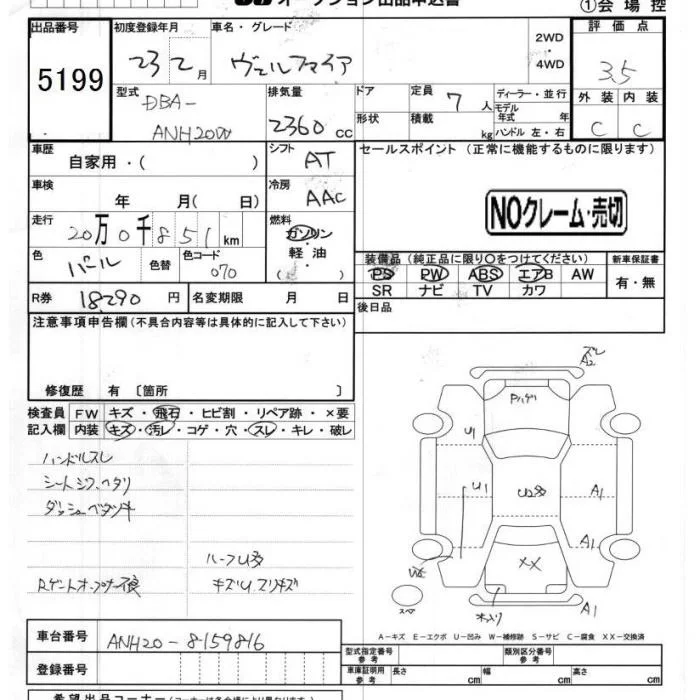 オークション出品申込書
①会場控
出品番号
5199
初度登録年月
23 2月
車名・グレード
ヴェルファイア
2WD
・
4WD
評価点
3.5
外装 内装
C C
型式
DBA-
ANH20W
排気量
2360cc
ドア
形状
定員 7人
積載 kg
ディーラー・並行
モデル年式 年
ハンドル 左・右
車歴
自家用・( )
シフト AT
セールスポイント (正常に機能するものに限ります)
NOクレーム・売切
車検
年 月( 日)
冷房 AAC
走行
20万0千851km
燃料
ガソリン
軽・油
( )
色 パール 色替
色コード 070
装備品 (純正品に限り○をつけてください)
新車保証書
PS PW ABS エアB AW
SR ナビ TV カワ
有・無
R券 18290円
名変期限 月 日
後日品
注意事項申告欄(不具合内容等は具体的に記入して下さい)
修復歴 有〔箇所 〕
検査員記入欄
FW キズ・飛石・ヒビ割・リペア跡・×要
内装 キズ・汚レ・コゲ・穴・スレ・キレ・破レ
ハンドルスレ
シートシワ、ヘタリ
ダッシュベタツキ
ルーフU多
Rゲートオープナー不良
キズU.スリキズ
ズレ
A2
Pハゲ
U1
U1
U2多
A1
A1
XX
A1
スペ
A-キズ E-エクボ U-凹み W-補修跡 S-サビ C-腐食 XX-交換済
車台番号 ANH20-8159816
登録番号
型式指定番号 参考
類別区分番号 参考
車庫証明用 参考 長さ cm 幅 cm 高さ cm
希望出品コーナー